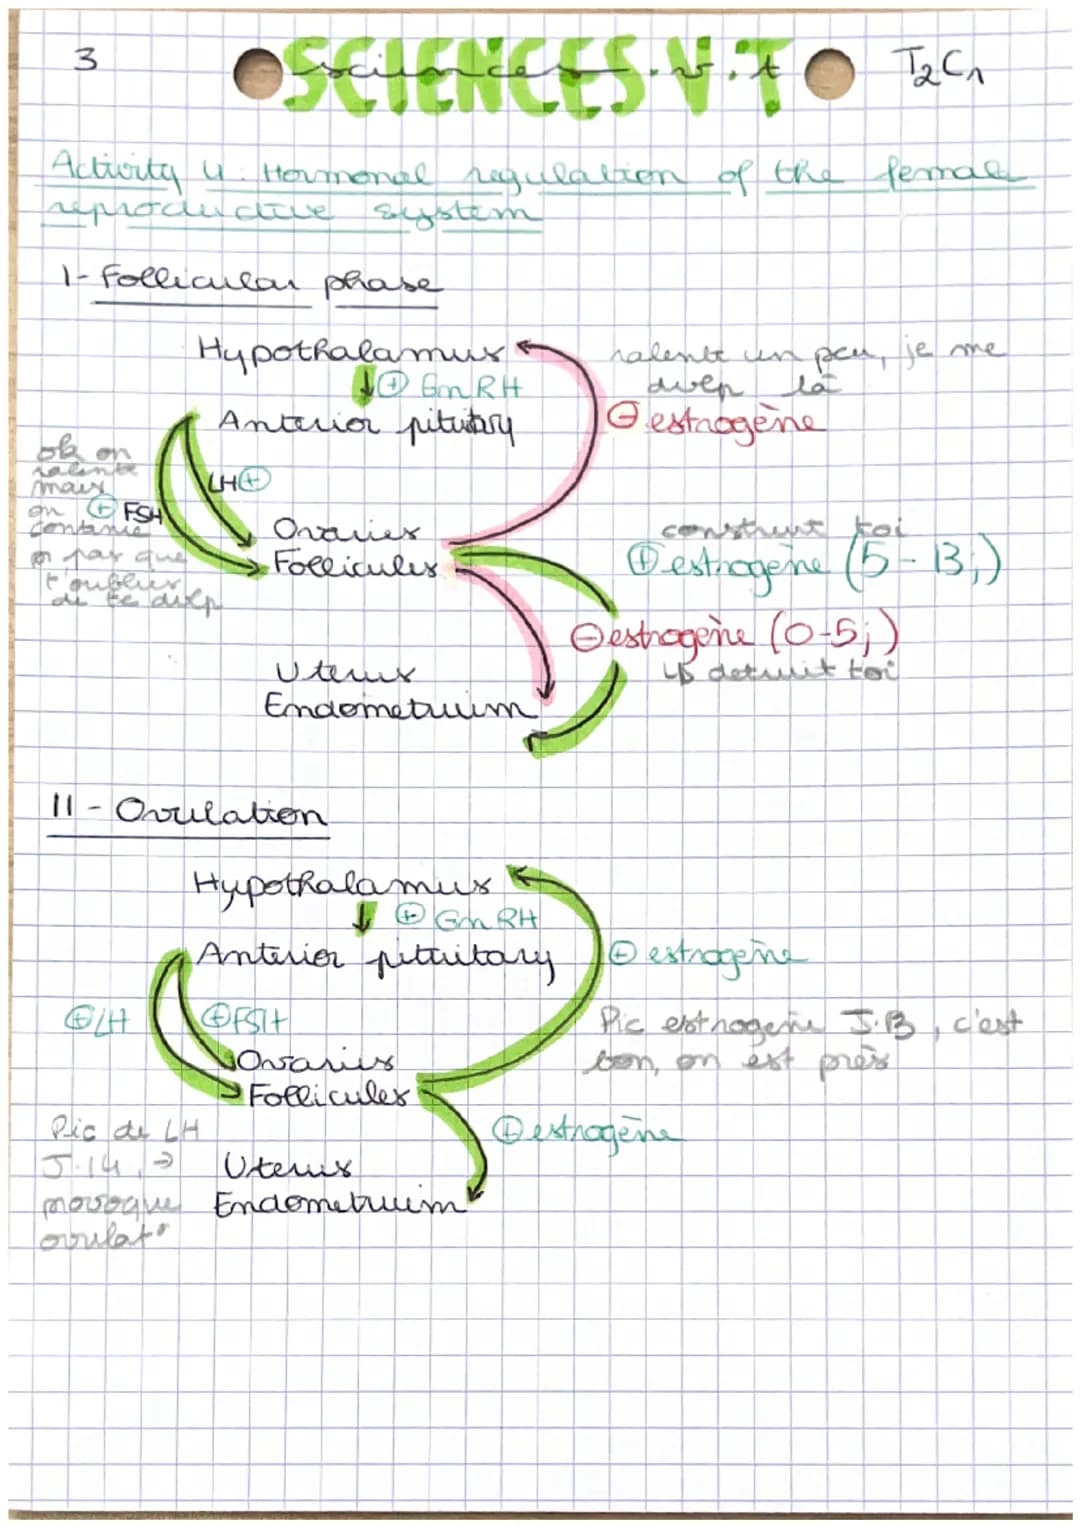 3
SCIENCES V.T
sciences.v.t
T2C1
Activity 4: Hormonal regulation of the female
reproductive system
I- Follicular phase
Hypothalamus
⊕ GnRH
Anterior pituitary
ralente un peu, je me
dvlp là
⊖ estrogène
ok on
ralente
mais
on
continue
pr pas que
t'oublies
de te dvlp
LH ⊕
⊕ FSH
Ovaries
Follicules
construit toi
⊕ estrogène (5-13j)
⊖ estrogène (0-5j)
↳ detruit toi
Uterus
Endometruim
II - Ovulation
Hypothalamus
⊕ GnRH
Anterior pituitary
⊕ estrogène
⊕LH
⊕FSH
Pic estrogene J.13, c'est
bon, on est près
Ovaries
Follicules
⊕ estrogène
Pic de LH
J.14, →
provoque
ovulat°
Uterus
Endometruim